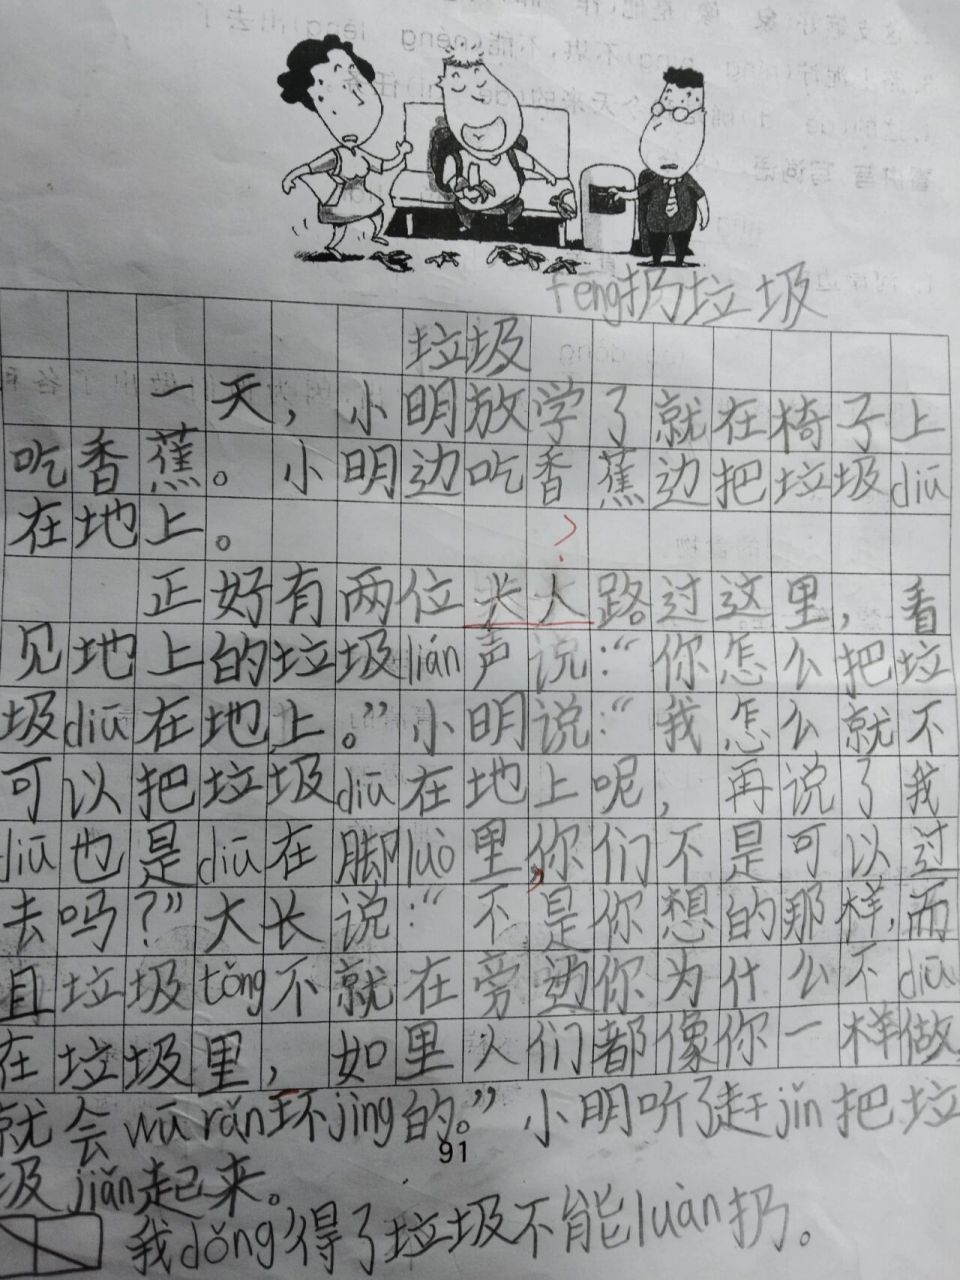 feng扔垃圾
垃圾
一天，小明放学了就在椅子上
吃香蕉。小明边吃香蕉边把垃圾diū
在地上。
?
正好有两位大人路过这里，看
见地上的垃圾lián声说：“你怎么把垃
圾diū在地上。”小明说：“我怎么就不
可以把垃圾diū在地上呢，再说了我
diū也是diū在脚luò里，你们不是可以过
去吗？”大长说：“不是你想的那样，而
且垃圾tǒng不就在旁边你为什么不diū
在垃圾里，如里人们都像你一样做，
就会wū rǎn环jìng的。”小明听了赶jǐn把垃
圾jiǎn起来。
91
我dǒng得了垃圾不能luàn扔。